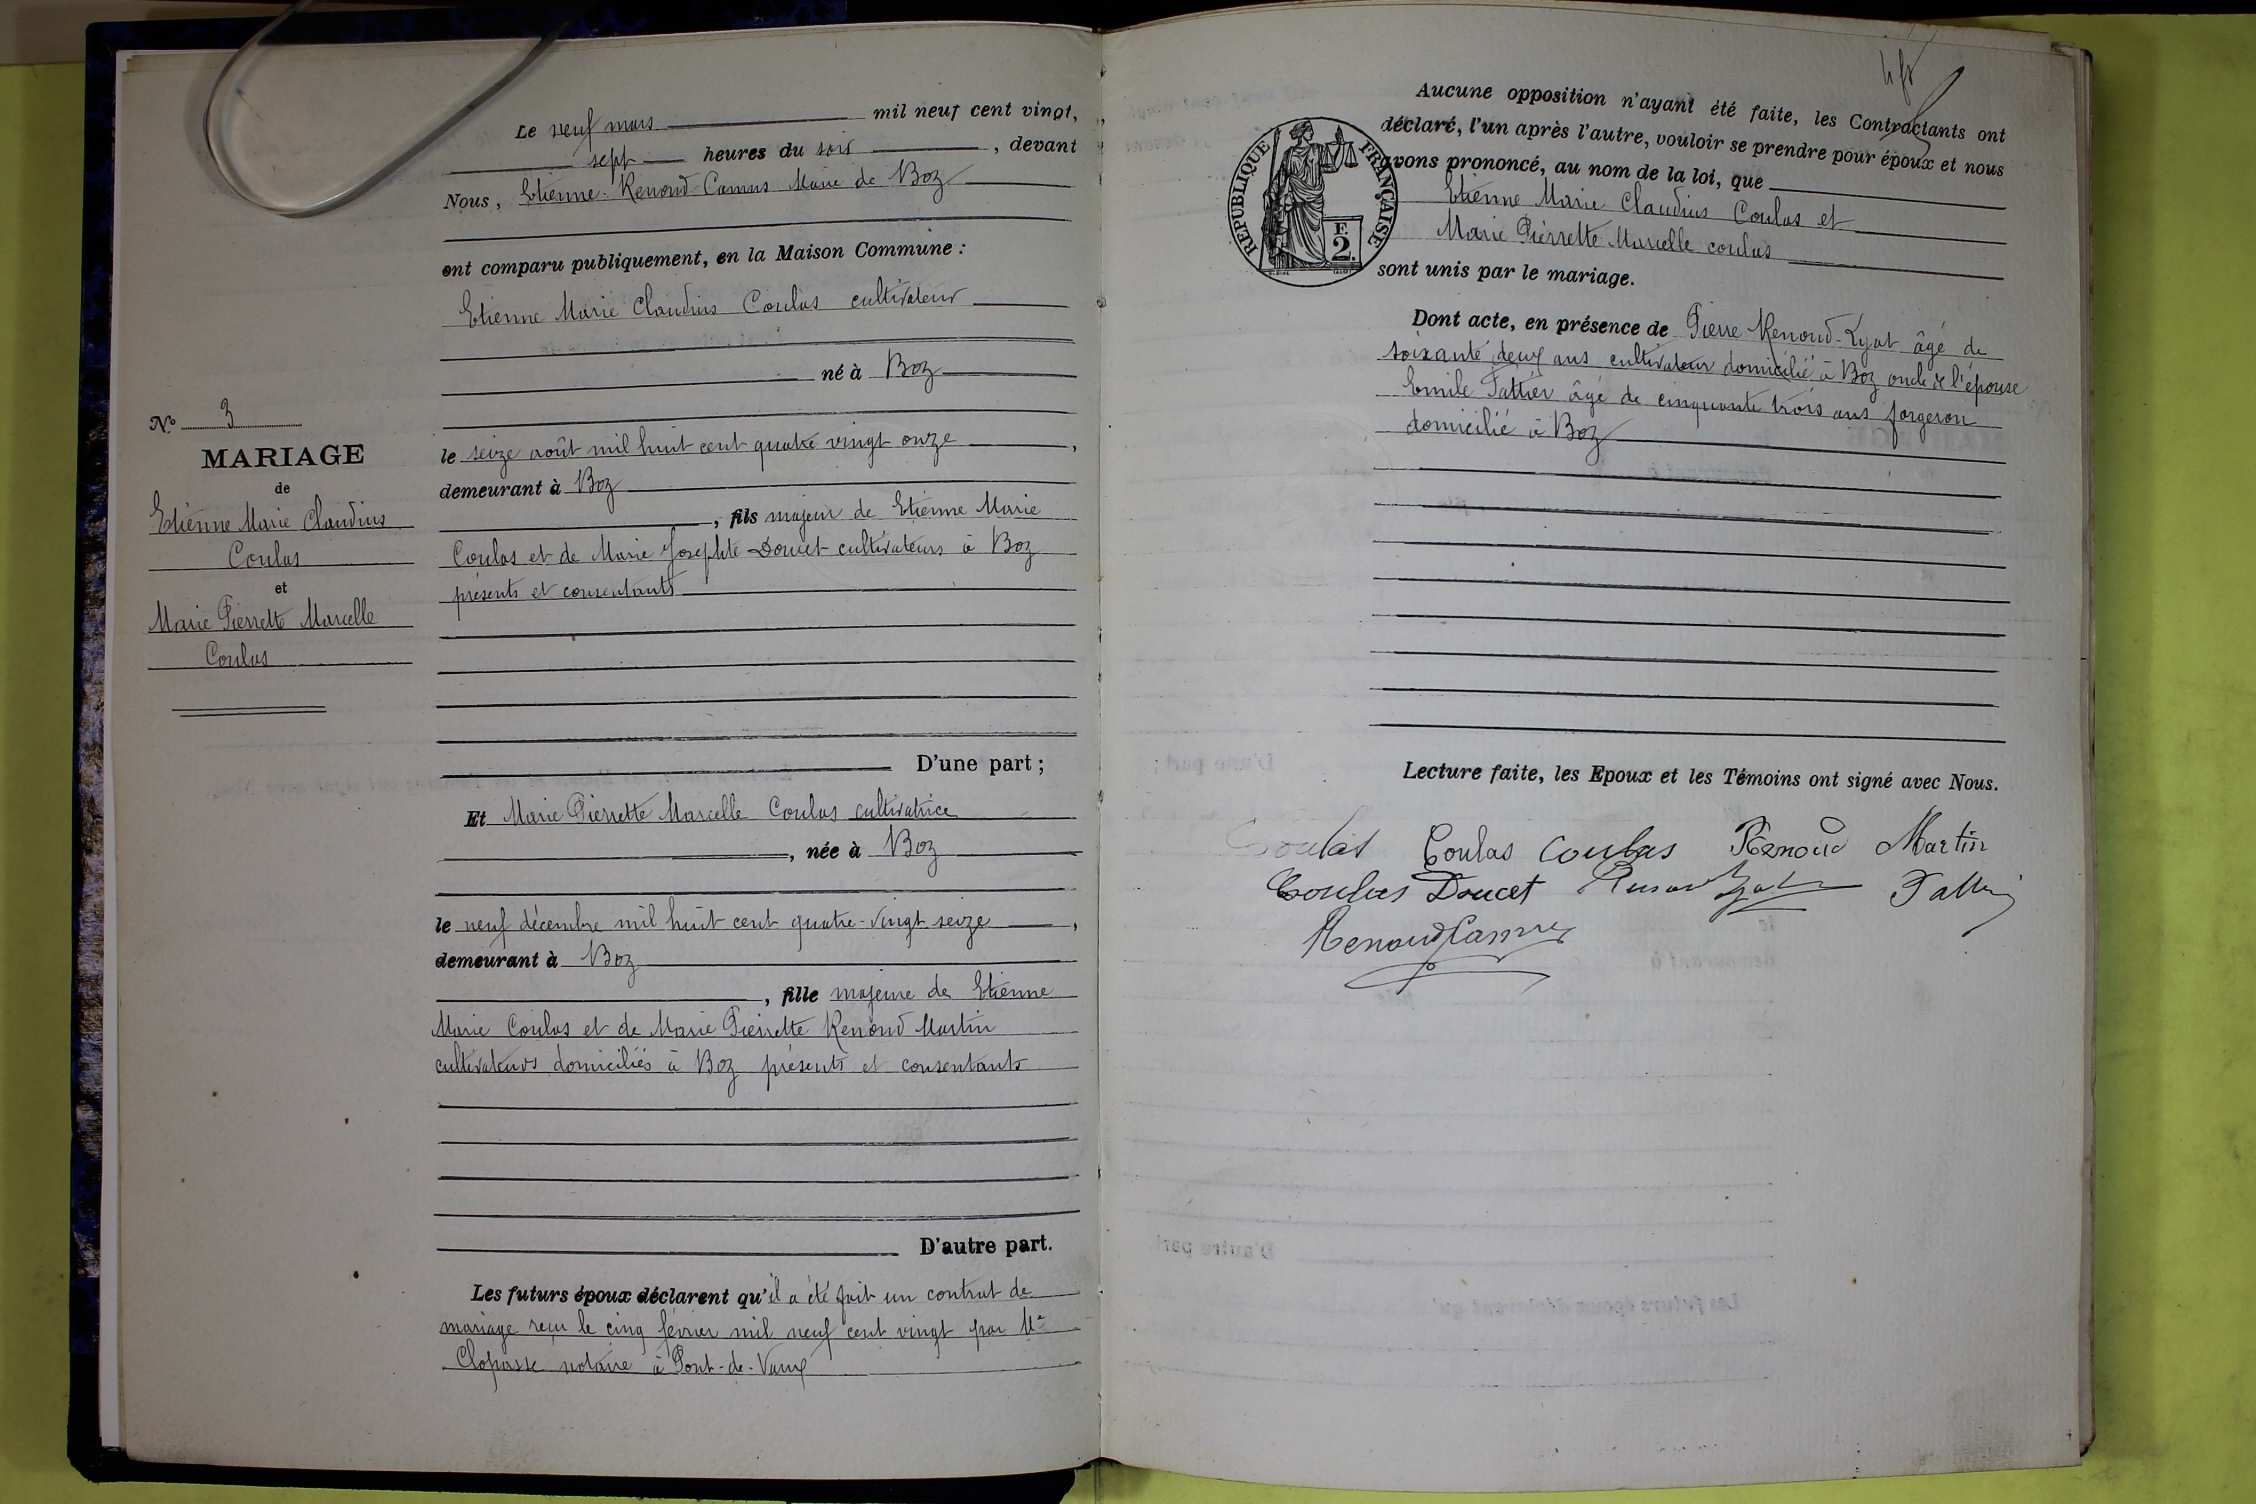 Le neuf mars mil neuf cent vingt,
sept heures du soir, devant
Nous, Etienne Renoud-Camus Maire de Boz
ont comparu publiquement, en la Maison Commune :
Etienne Marie Claudius Coulas cultivateur
né à Boz
le seize août mil huit cent quatre vingt onze,
demeurant à Boz
, fils majeur de Etienne Marie
Coulas et de Marie Josephte Doucet cultivateurs à Boz
présents et consentants
D'une part ;
N° 3
MARIAGE
de
Etienne Marie Claudius
Coulas
et
Marie Pierrette Marcelle
Coulas
Et Marie Pierrette Marcelle Coulas cultivatrice
, née à Boz
le neuf décembre mil huit cent quatre-vingt seize,
demeurant à Boz
, fille majeure de Etienne
Marie Coulas et de Marie Pierrette Renoud Martin
cultivateurs domiciliés à Boz présents et consentants
D'autre part.
Les futurs époux déclarent qu'il a été fait un contrat de
mariage reçu le cinq février mil neuf cent vingt par Me
notaire à Pont-de-Vaux
Aucune opposition n'ayant été faite, les Contractants ont
déclaré, l'un après l'autre, vouloir se prendre pour époux et nous
avons prononcé, au nom de la loi, que
Etienne Marie Claudius Coulas et
Marie Pierrette Marcelle coulas
sont unis par le mariage.
REPUBLIQUE FRANÇAISE
F.
2.
Dont acte, en présence de Pierre Renoud-Lyat âgé de
soixante deux ans cultivateur domicilié à Boz oncle de l'épouse
Emile Tattier âgé de cinquante trois ans forgeron
domicilié à Boz
Lecture faite, les Epoux et les Témoins ont signé avec Nous.
Coulas Coulas Coulas Renoud Martin
Coulas Doucet Renoud Lyat
Renoud Camus